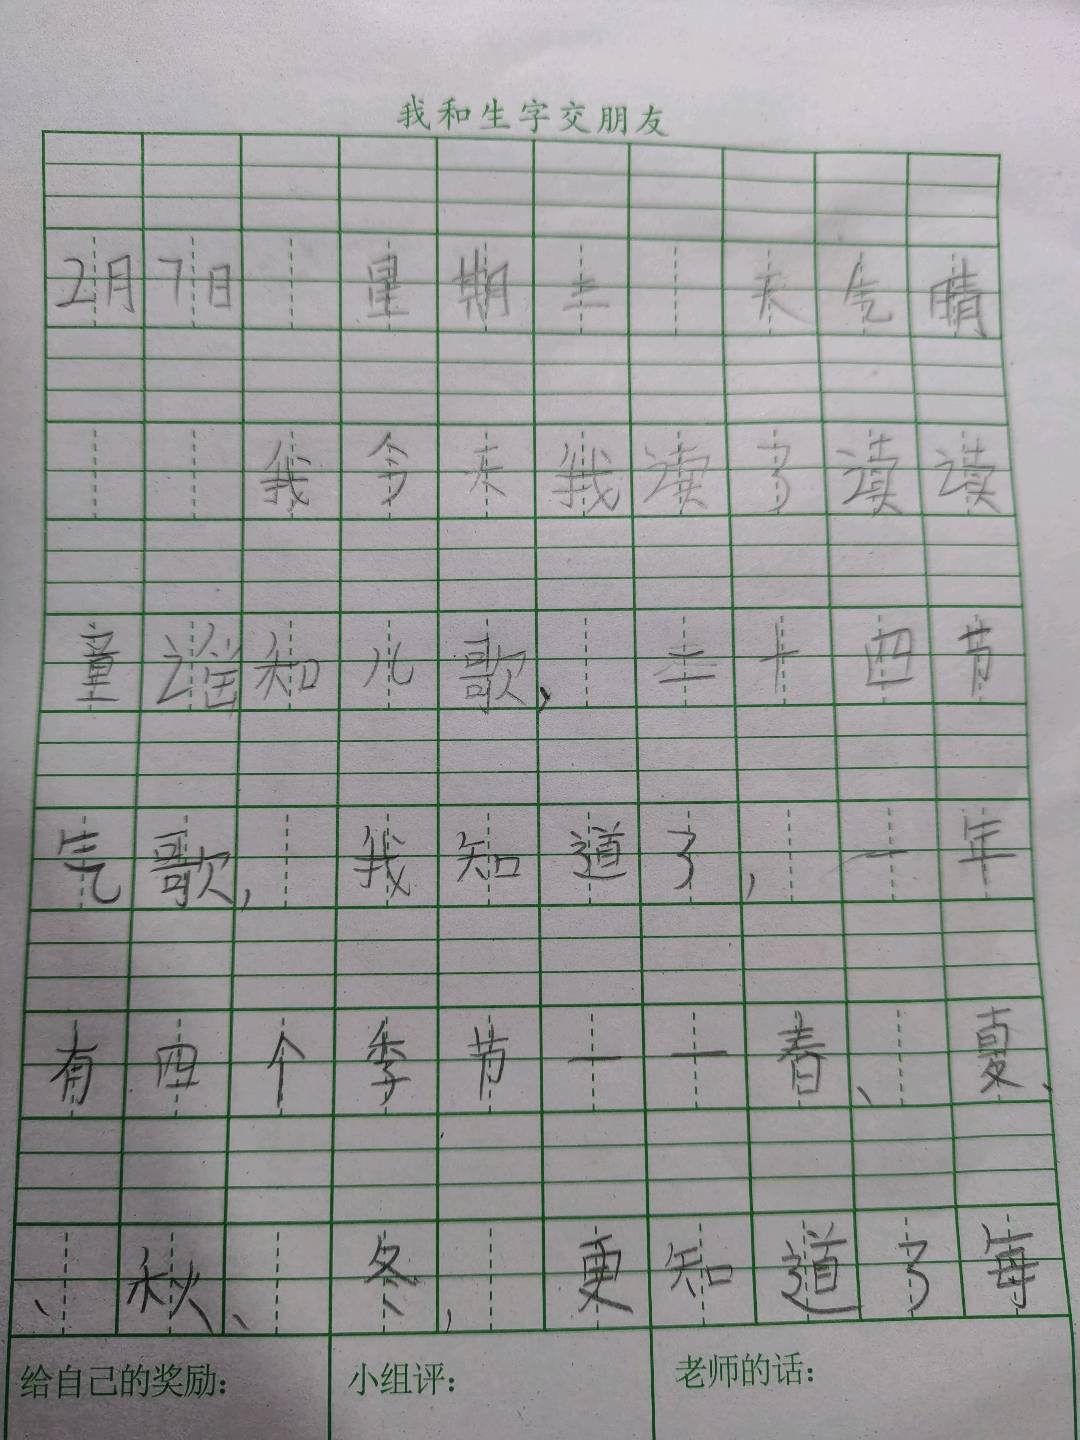 我和生字交朋友
2月7日 星期三 天气晴
我今天我读了读读
童谣和儿歌, 三十四节
气歌, 我知道了, 一年
有四个季节——春、夏、
、秋、冬、, 更知道了每
给自己的奖励: 小组评: 老师的话: